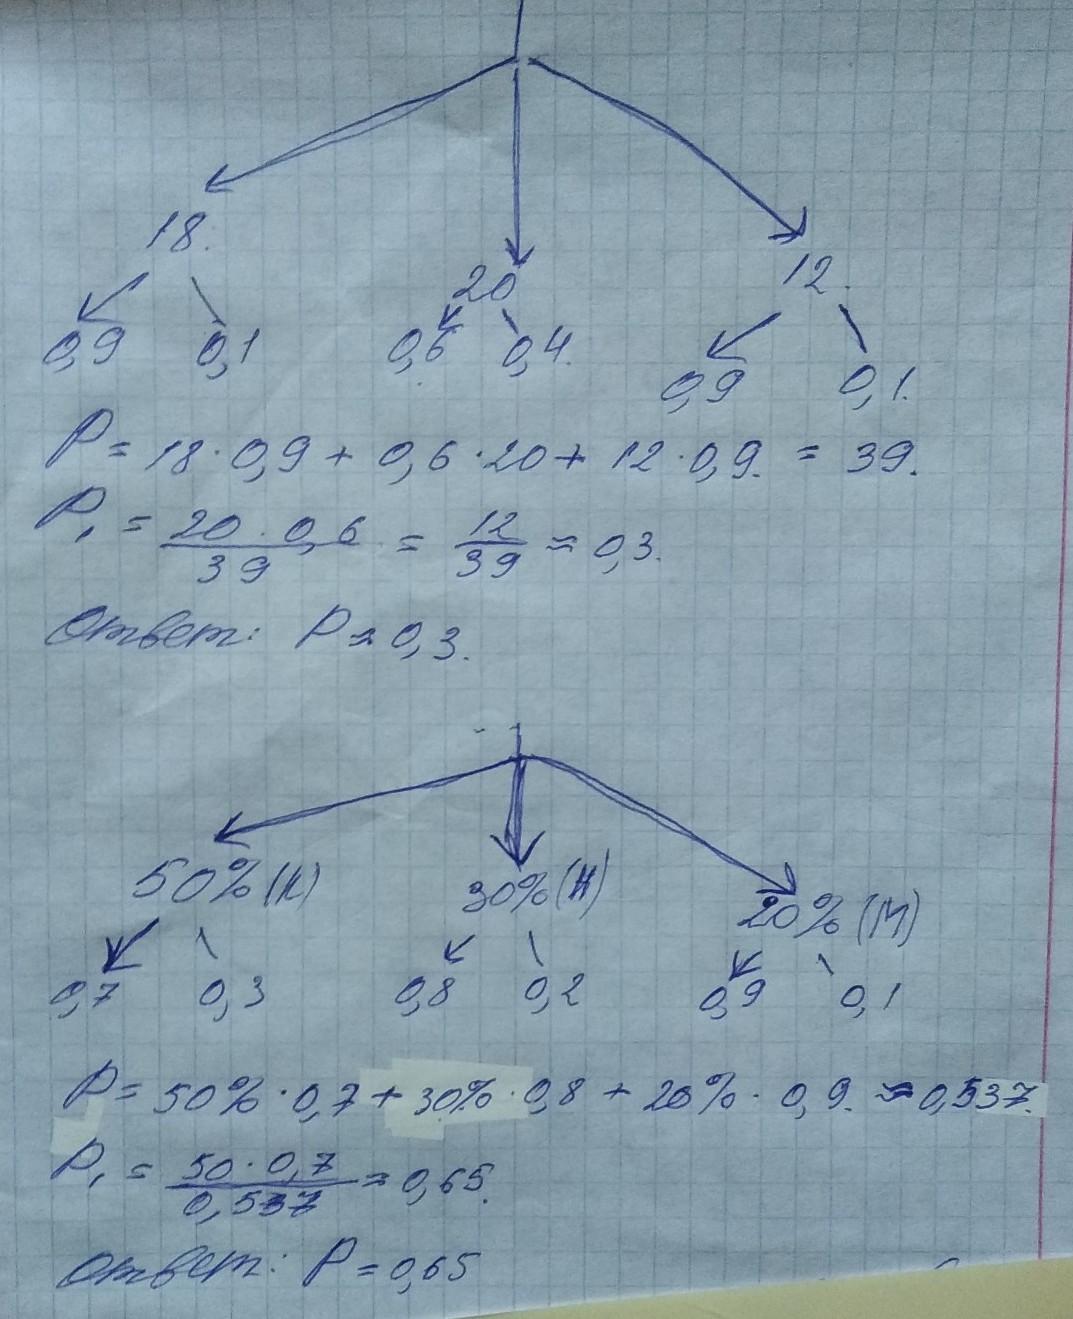 18.
20
12.
0,9 0,1 0,6 0,4. 0,9 0,1.
P = 18 · 0,9 + 0,6 · 20 + 12 · 0,9. = 39.
P₁ = 20 · 0,6 / 39 = 12 / 39 ≈ 0,3.
Ответ: P ≈ 0,3.
50% (К) 30% (Н) 20% (М)
0,7 0,3 0,8 0,2 0,9 0,1
P = 50% · 0,7 + 30% · 0,8 + 20% · 0,9. ≈ 0,537.
P₁ = 50 · 0,7 / 0,537 ≈ 0,65.
Ответ: P = 0,65